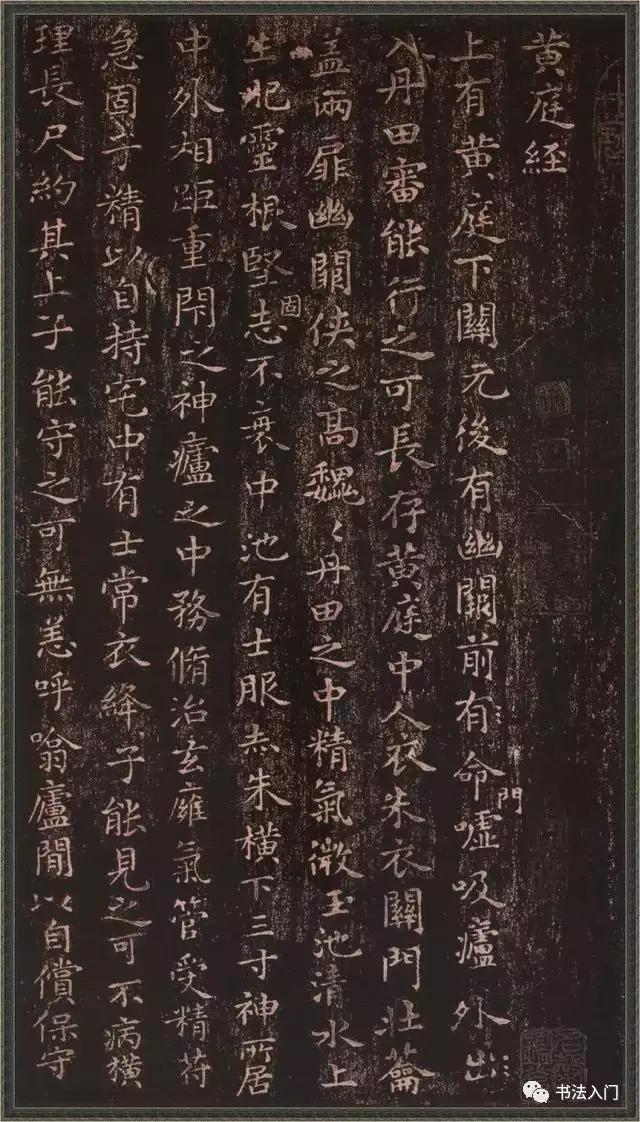 黄庭經
上有黄庭下關元後有幽闕前有命門噓吸廬外出
入丹田審能行之可長存黄庭中人衣朱衣關門壯籥
盖兩扉幽闕俠之高魏〻丹田之中精氣微玉池清水上
生肥靈根堅固志不衰中池有士服赤朱橫下三寸神所居
中外相距重閇之神廬之中務脩治玄𤸷氣管受精符
急固子精以自持宅中有士常衣絳子能見之可不病橫
理長尺約其上子能守之可無恙呼噏廬間以自償保守
书法入门